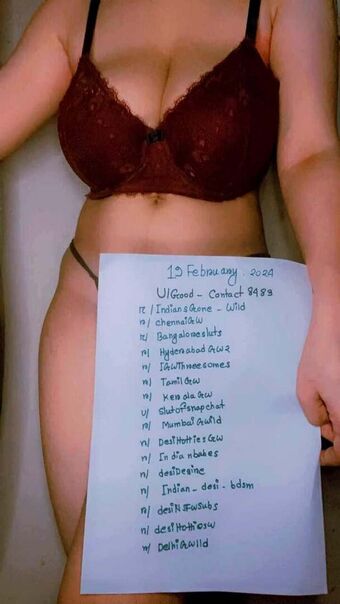 19 February. 2024
U/Good - Contact 8483
r/ Indians Gone - Wild
r/ chennai GW
r/ Bangalore sluts
r/ Hyderabad GW2
r/ IGW Threesomes
r/ Tamil GW
r/ Kerala GW
u/ Slutofsnapchat
r/ Mumbai Gwild
r/ Desi Hotties GW
r/ Indian babes
r/ desi Desire
r/ Indian - desi - bdsm
r/ desi NSFW Subs
r/ desi Hotties w
r/ Delhi GWild